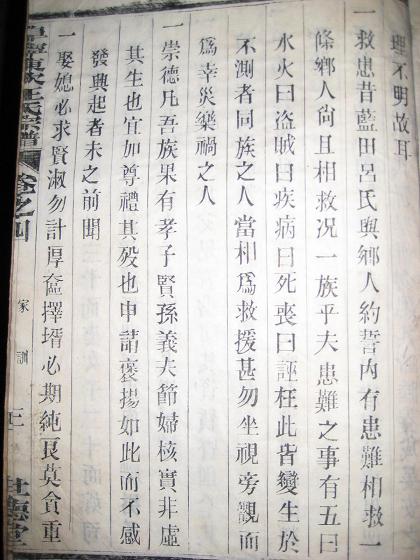 理不明故耳
一救患昔藍田呂氏與鄉人約誓內有患難相救一
條鄉人尙且相救況一族乎夫患難之事有五曰
水火曰盜賊曰疾病曰死喪曰誣枉此皆變生於
不測者同族之人當相爲救援甚勿坐視旁觀而
爲幸災樂禍之人
一崇德凡吾族果有孝子賢孫義夫節婦核實非虛
其生也宜加尊禮其歿也申請褒揚如此而不感
發興起者未之前聞
一娶媳必求賢淑勿計厚奩擇壻必期純良莫貪重
氏宗譜 卷之四 家訓